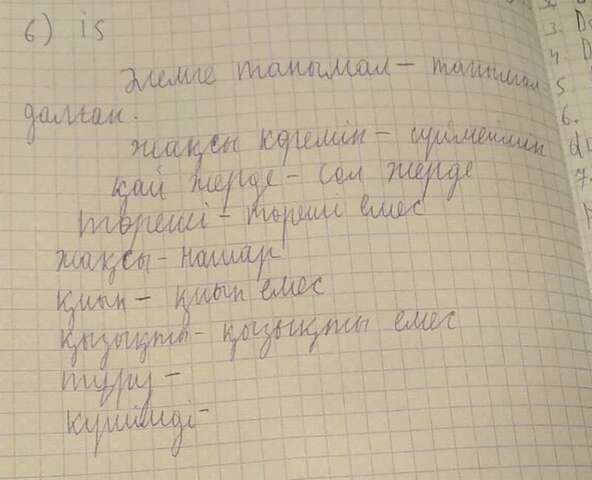 6) is
Әлемге танымал – танымал
далған.
жақсы көремін – сүймеймін
қай жерде – сол жерде
төреші – төреші емес
жақсы – нашар
қиын – қиын емес
қызықты – қызықты емес
тұру –
күшейді –
3. Do
4. D
5
6.
7.